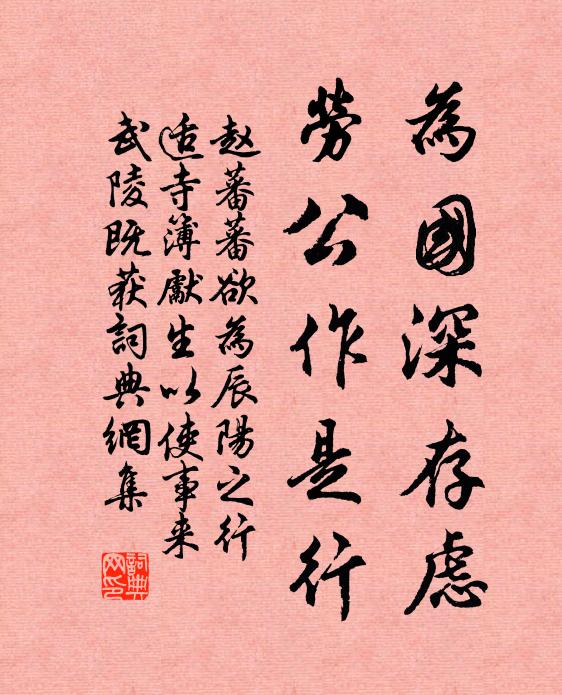 為國深存慮
勞公作是行
赵蕃蕃欲為辰陽之行
适寺簿獻生以使事来
武陵既获詞典網集
詞典
网印